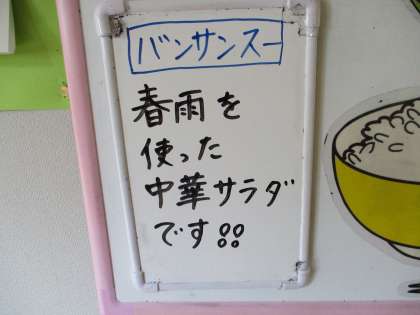 バンサンスー
春雨を
使った
中華サラダ
です!!